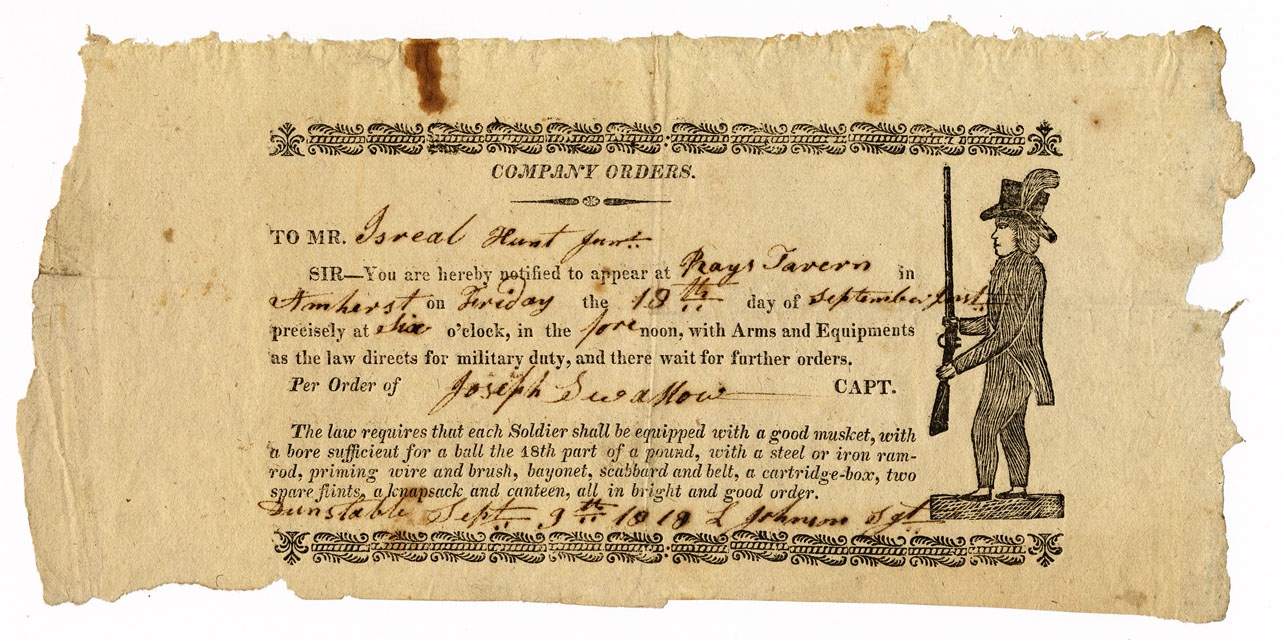 COMPANY ORDERS.
TO MR. Isreal Hunt Junr
SIR—You are hereby notified to appear at Rays Tavern in
Amherst on Friday the 18th day of September inst
precisely at Six o'clock, in the forenoon, with Arms and Equipments
as the law directs for military duty, and there wait for further orders.
Per Order of Joseph Swallow CAPT.
The law requires that each Soldier shall be equipped with a good musket, with
a bore sufficient for a ball the 18th part of a pound, with a steel or iron ram-
rod, priming wire and brush, bayonet, scabbard and belt, a cartridge-box, two
spare flints, a knapsack and canteen, all in bright and good order.
Dunstable Sept 9th 1818 L Johnson Sgt